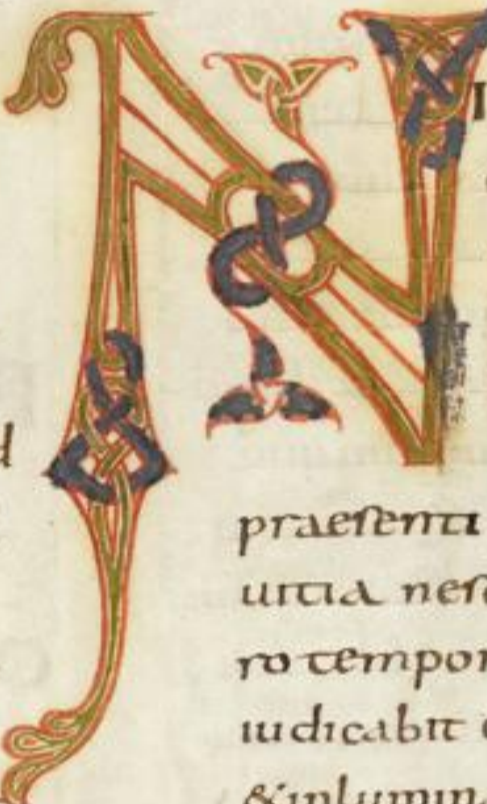 N
praesenti
uitia nes
ro tempor
iudicabit
& inlumin